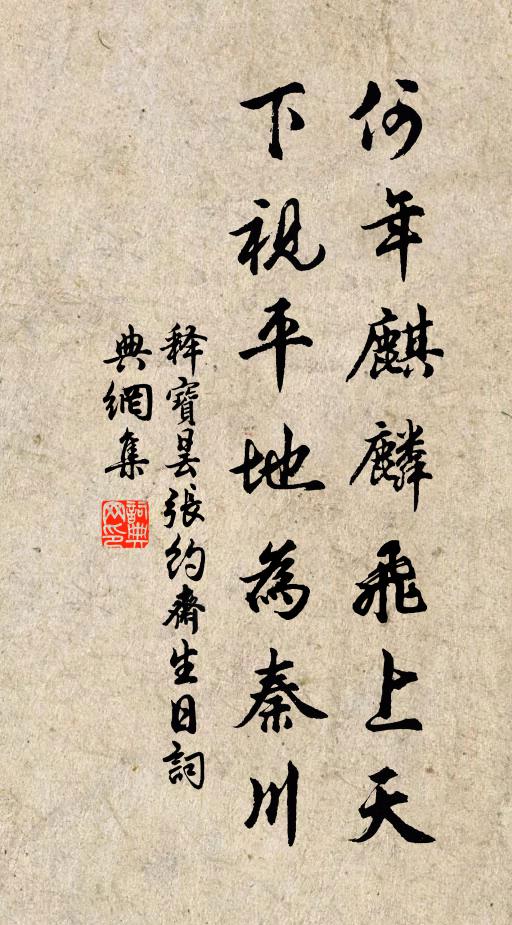 何年麒麟飛上天
下視平地為秦川
释寶曇張約齋生日詞
典網集
詞典网印